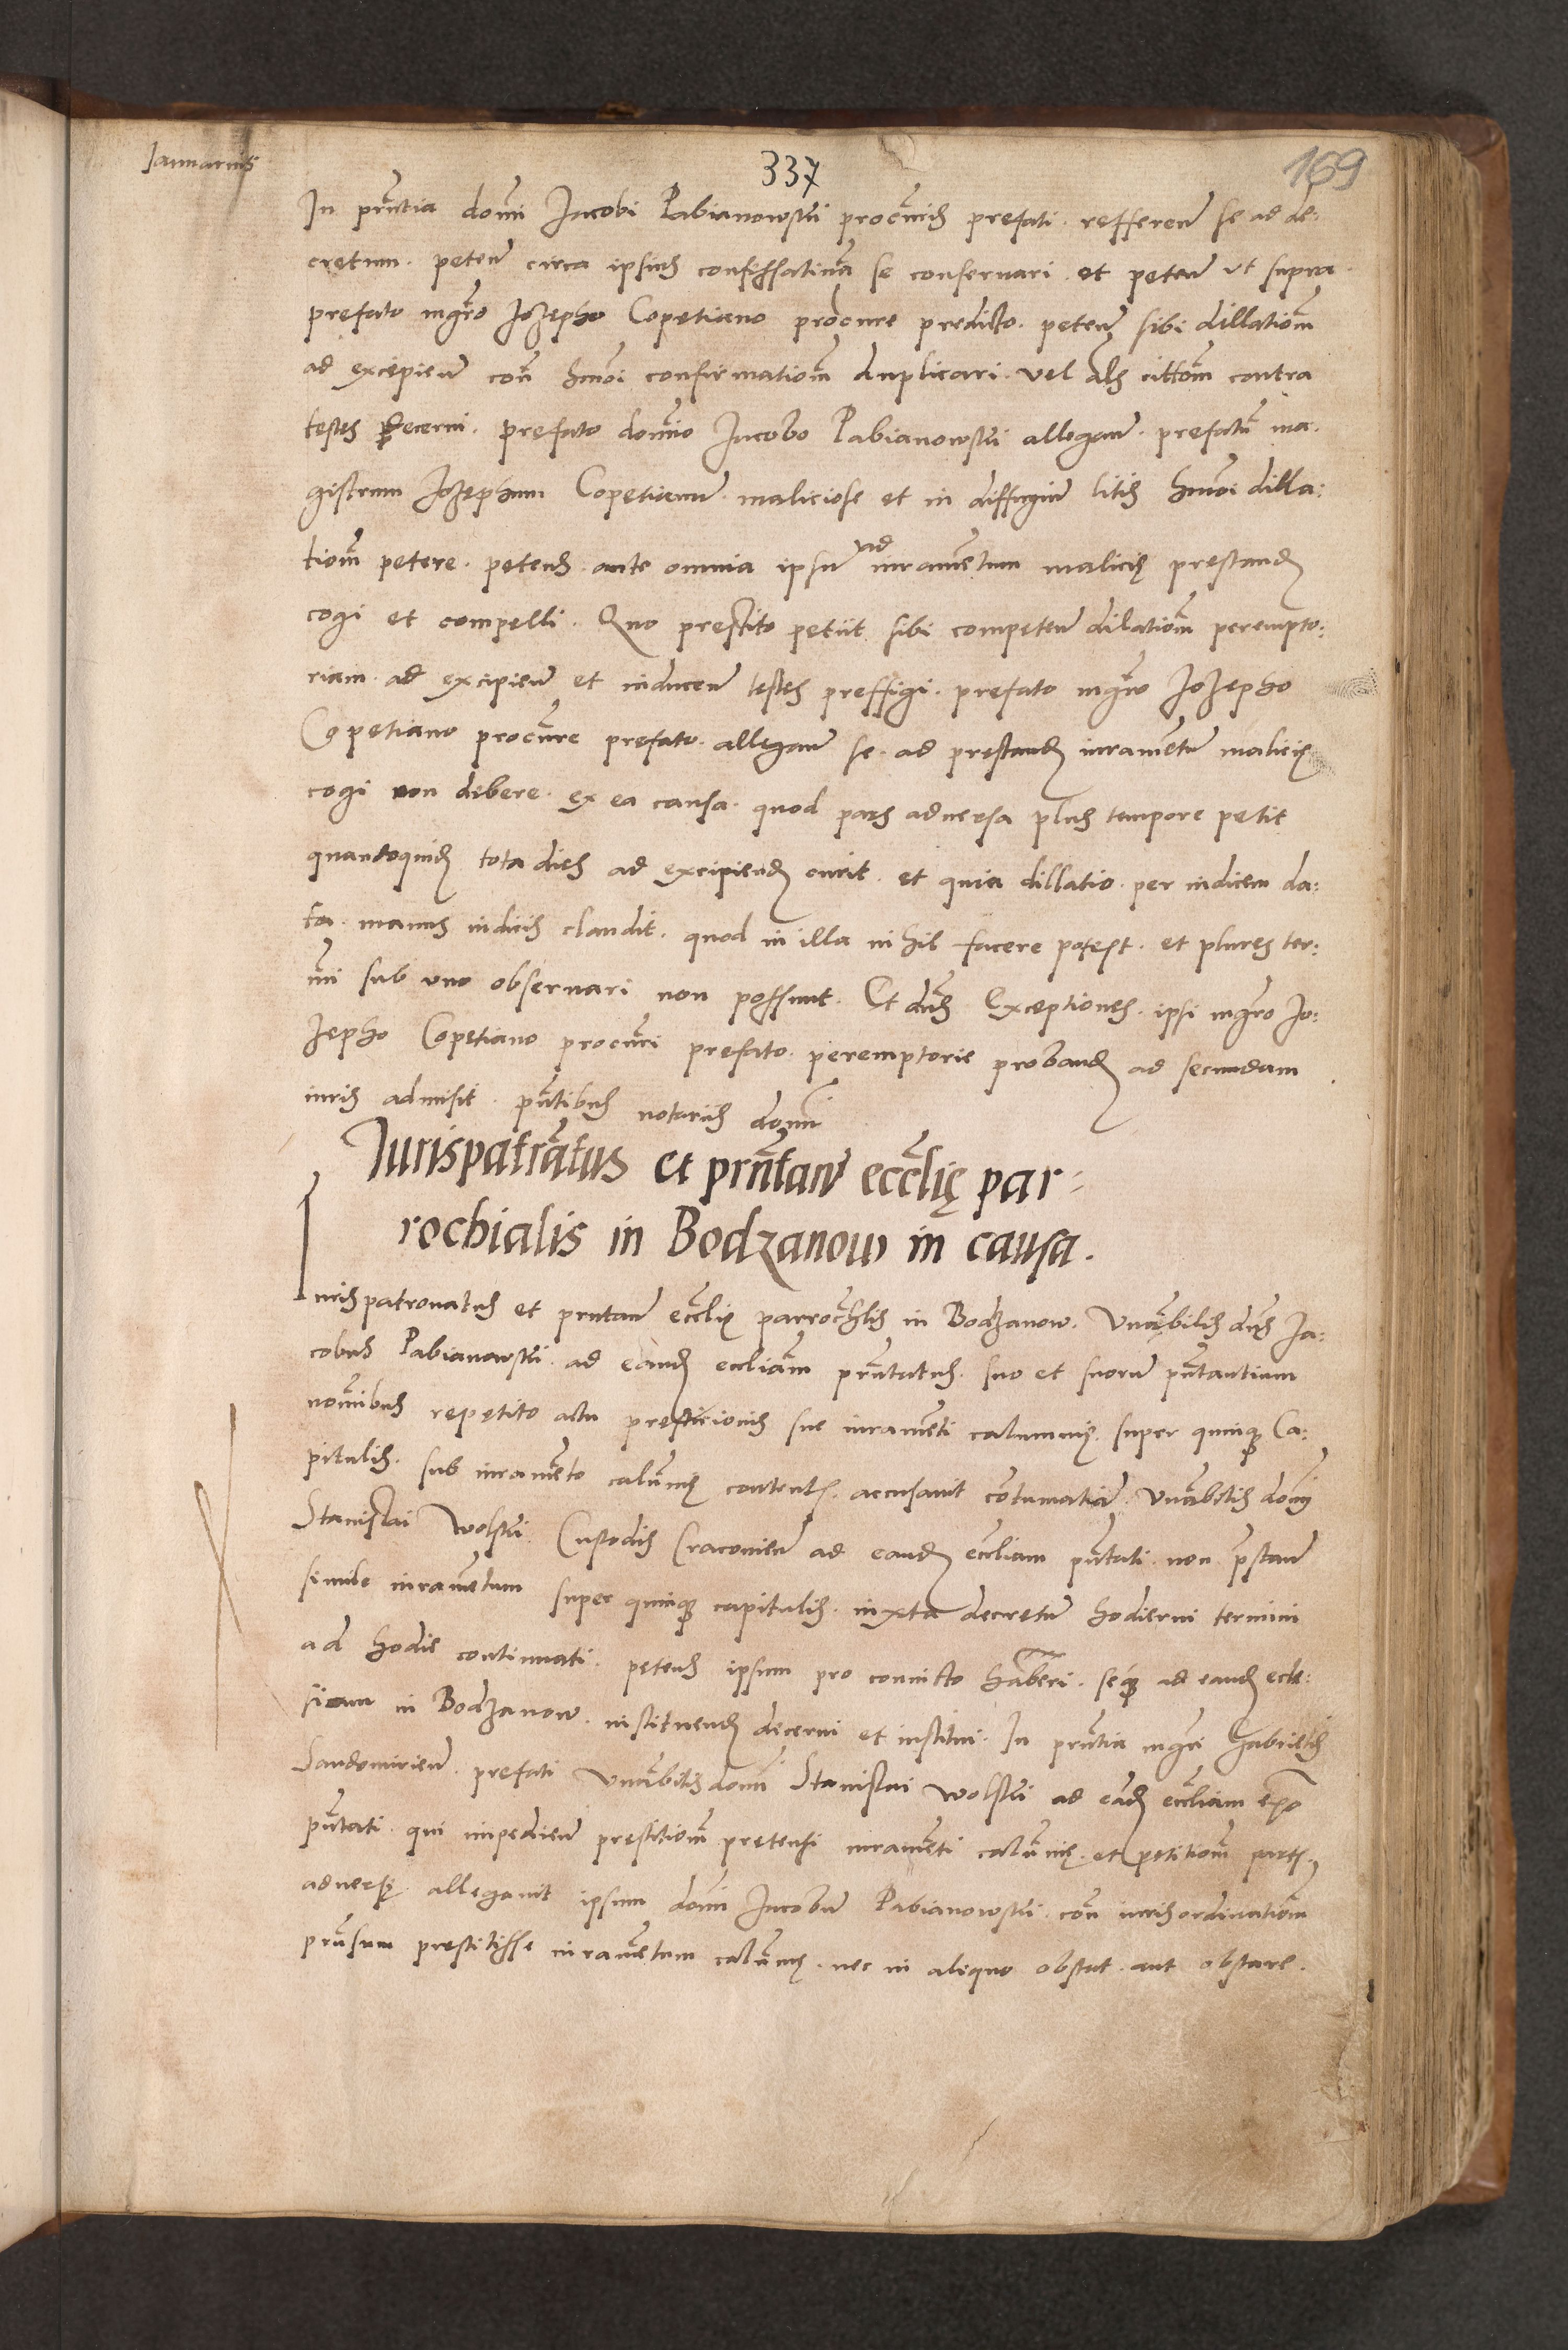 Januarius
337
169
In pñtia domi Jacobi Pabianowski procuris prefati. refferen se ad de:
cretum. peten circa ipsius se conservari et peten ut supra
prefato mgro Jozepho Copetiano procure predicto. peten sibi dillatiom
ad excipien con hmoi confirmatiom duplicari. vel als cittom contra
testes decerni. prefato domino Jacobo Pabianowski allegan. prefatu ma:
gistrum Jozephum Copetianum maliciose et in diffugiu litis hmoi dilla:
tiom petere. petens. ante omnia ipsu ad iuramentum malicię prestand
cogi et compelli. Quo prestito petiit sibi competen dilatiom perempto:
riam. ad excipien et inducen testes preffigi. prefato mgro Jozepho
Copetiano procure prefato. allegan se ad prestand iurametu malicię
cogi non debere. ex ea causa. quod pars adversa plus tempore petit
quandoquid tota dies ad excipiend currit. et quia dillatio per iudicem da:
ta. manus iudicis claudit. quod in illa nihil facere potest. et plures ter:
mi sub uno observari non possunt. Et dns Exceptiones. ipsi mgro Jo:
zepho Copetiano procuri prefato. peremptorie proband ad secundam
iuris admisit. pntibus notariis domi
Jurispatratus et prntan ecclię par-
rochialis in Bodzanow in causa.
Jurispatronatus et prntan ecclię parrochlis in Bodzanow. Vnabilis dns Ja:
cobus Pabianowski ad eand eccliam prntatus. suo et suoru pntantium
nomibus repetito actu prestitionis sue iuramenti calumnię. super quinq Ca:
pitulis. sub iurameto calumię content. accusavit contumatia. Vnabilis domi
Stanislai Wolski Custodis Cracovien ad eand eccliam pntati non pstan
simile iurametum super quinq capitulis. iuxta decretu hodierni termini
ad hodie continuati. petens ipsum pro convicto haberi. seq ad eand eccle:
siam in Bodzanow. instituend decerni et institui. In prntia mgri Gabrielis
Sandomirien. prefati Vnabilis domi Stanislai Wolski ad ead eccliam expo
pntati. qui impedien prestitiom pretensi iurameti calumię. et petitiom part
adversę allegavit ipsum dom Jacobu Pabianowski con iuris ordinatiom
prnsum prestitisse iurametum calumię. nec in aliquo obstat. aut obstare.